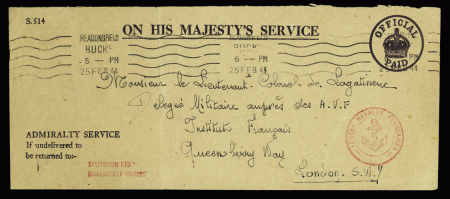 S.514
ON HIS MAJESTY'S SERVICE
BEACONSFIELD
BUCKS
6 - PM
25 FEB 44
BUCKS
6 - PM
25 FEB 44
OFFICIAL
PAID
Monsieur le Lieutenant-Colonel de Lagatinerie
Délégué Militaire auprès des A.V.F
Institut Français
Queensberry Way
London. S.W.7
ADMIRALTY SERVICE
If undelivered to
be returned to:-
FORCES NAVALES FRANÇAISES